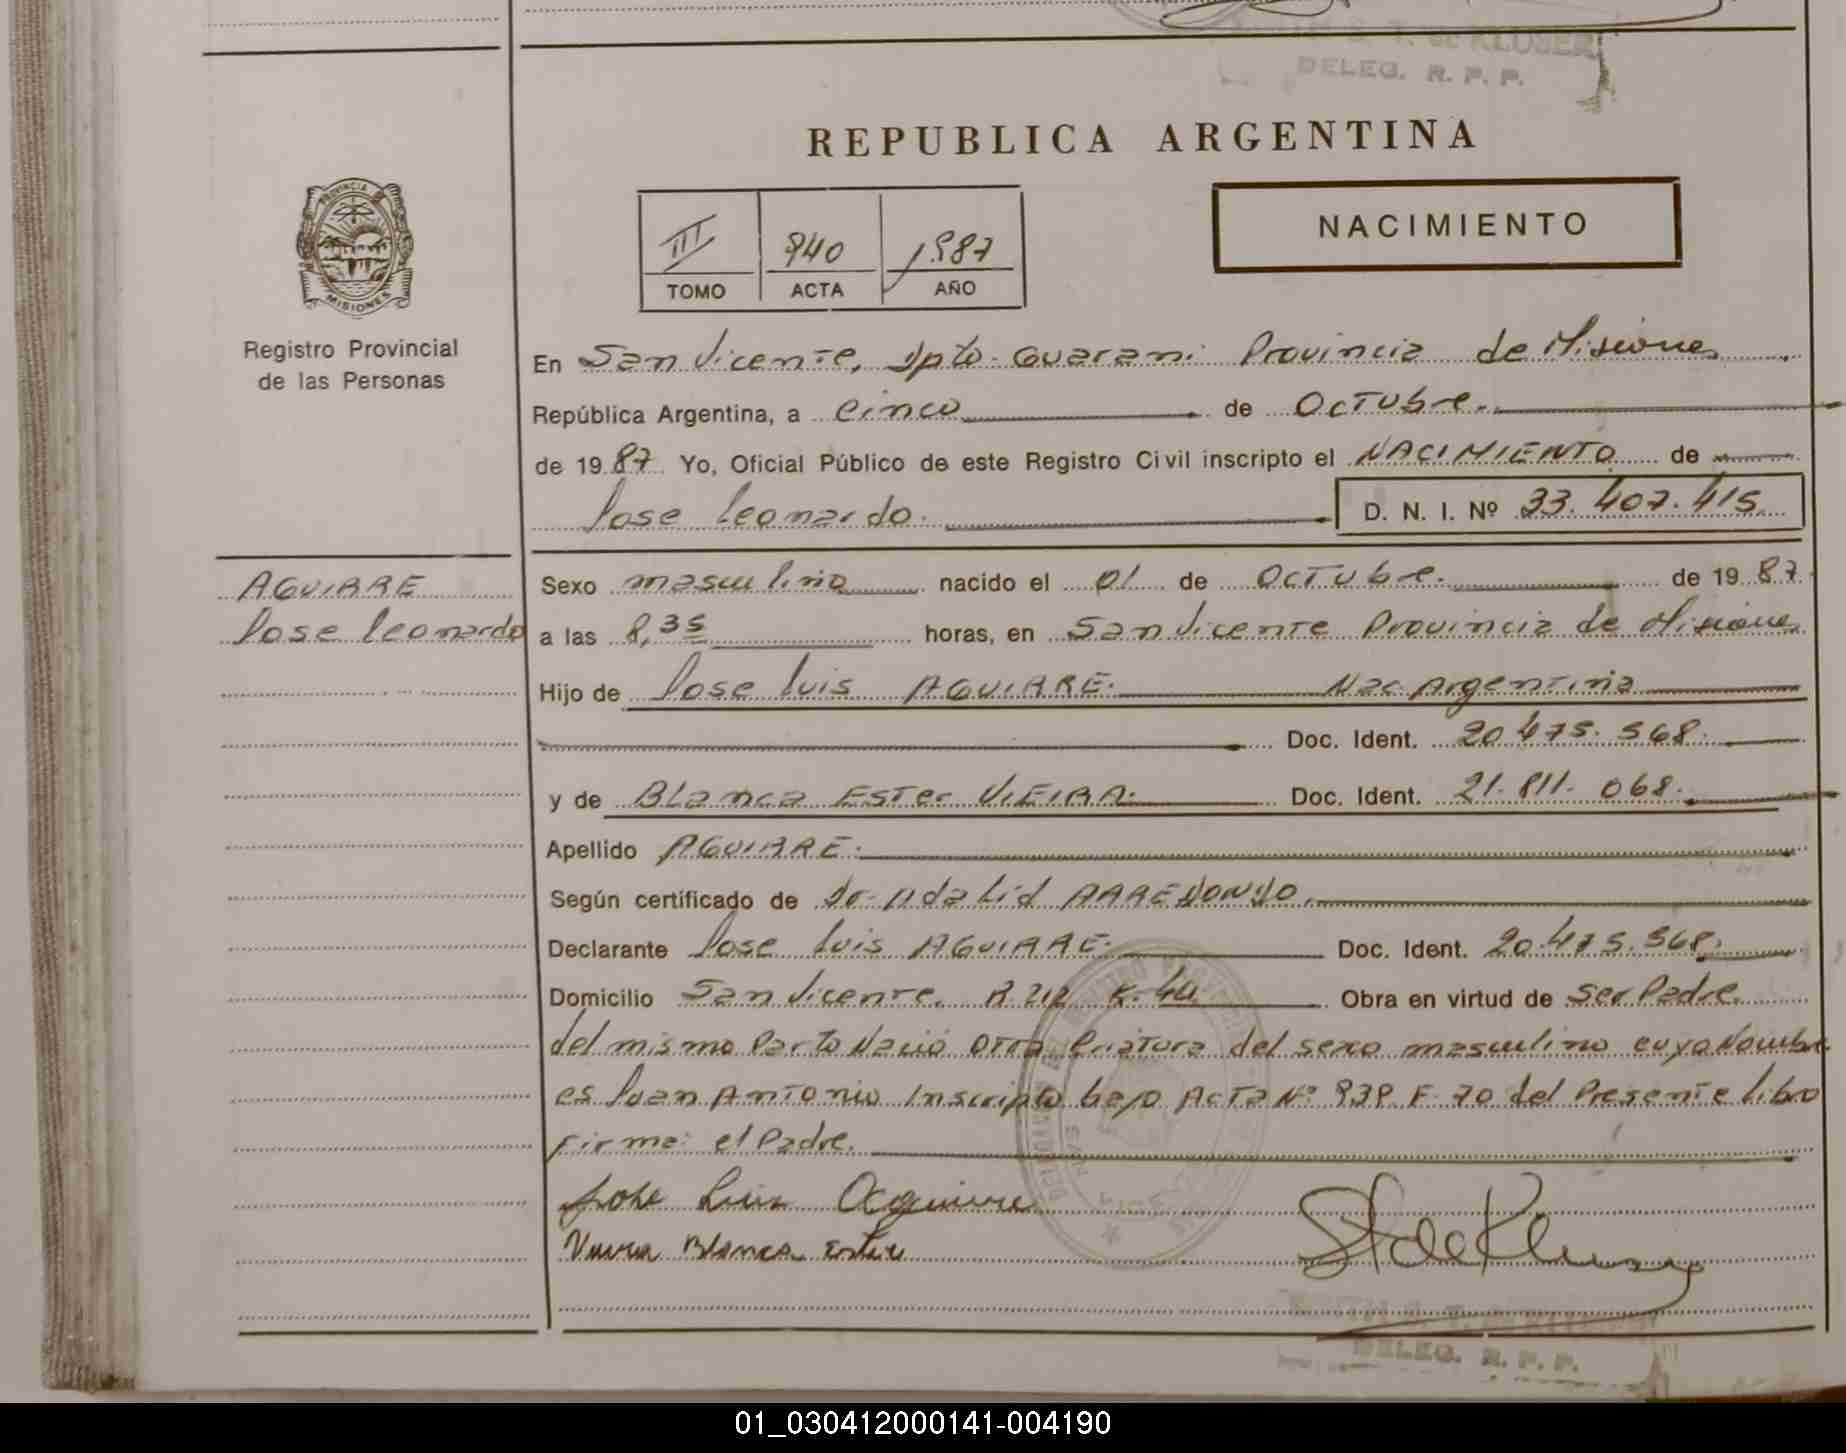 S. T. de KLUSER
DELEG. R. P. P.
REPUBLICA ARGENTINA
NACIMIENTO
III 940 1987
TOMO ACTA AÑO
PROVINCIA
MISIONES
Registro Provincial
de las Personas
En San Vicente, Dpto. Guarani Provincia de Misiones
República Argentina, a cinco de Octubre.
de 19 87 Yo, Oficial Público de este Registro Civil inscripto el NACIMIENTO de
Jose Leonardo. D. N. I. Nº 33.407.415
AGUIRRE
Jose Leonardo
Sexo masculino nacido el 01 de Octubre. de 19 87.
a las 8,35 horas, en San Vicente Provincia de Misiones
Hijo de Jose Luis AGUIRRE. Nac. Argentina
Doc. Ident. 20.475.568.
y de Blanca Ester VIEIRA. Doc. Ident. 21.811.068.
Apellido AGUIRRE.
Según certificado de Dr. Adalid ARREDONDO.
Declarante Jose Luis AGUIRRE. Doc. Ident. 20.475.568.
Domicilio San Vicente. R. 212 K. 44 Obra en virtud de Ser Padre.
del mismo Parto Nació Otra Criatura del sexo masculino cuyo Nombre
es Juan Antonio Inscripto bajo Acta Nº 939 F. 70 del Presente libro
Firma: el Padre.
Jose Luis Aguirre
Vieira Blanca Ester
St de Kluser
DELEG. R. P. P.
01_030412000141-004190